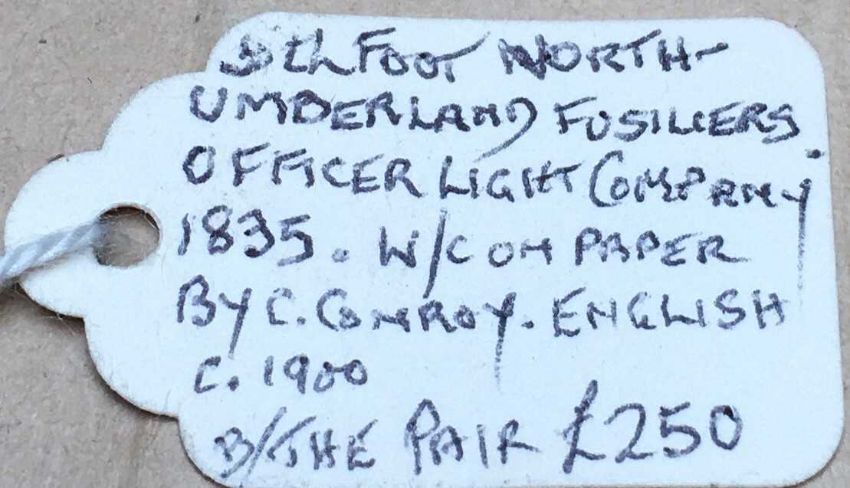 5th FOOT NORTH-
UMBERLAND FUSILIERS.
OFFICER LIGHT COMPANY
1835. W/C ON PAPER
BY C. CONROY. ENGLISH
C. 1900
B/THE PAIR £250